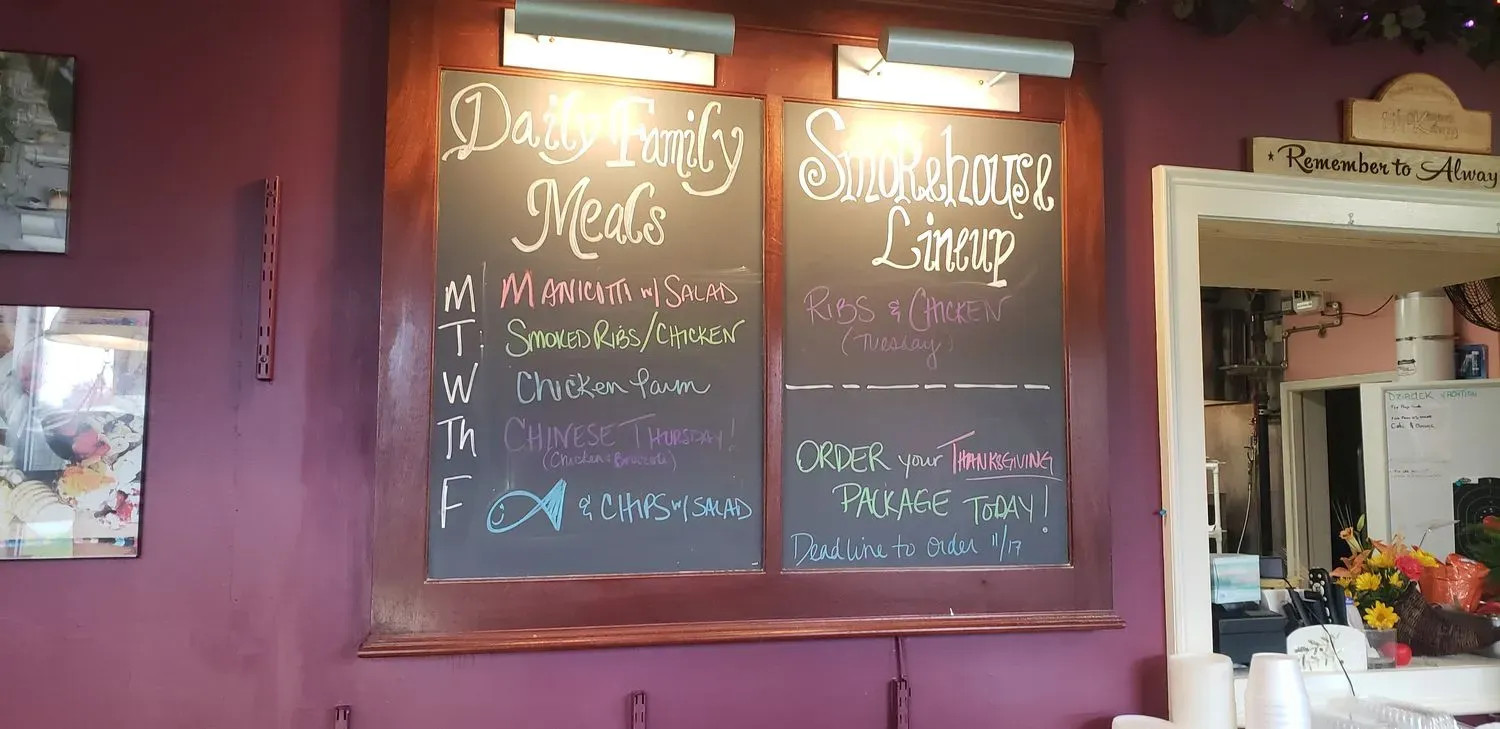 Daily Family
Meals
M MANICOTTI w/ SALAD
T: SMOKED RIBS/CHICKEN
W Chicken Parm
Th CHINESE THURSDAY!
(Chicken & Broccoli)
F & CHIPS w/ SALAD
SMOKehouse
Lineup
RIBS & CHICKEN
(Tuesday)
ORDER your THANKSGIVING
PACKAGE TODAY!
Deadline to order 11/17
Remember to Alway
DZIADEK